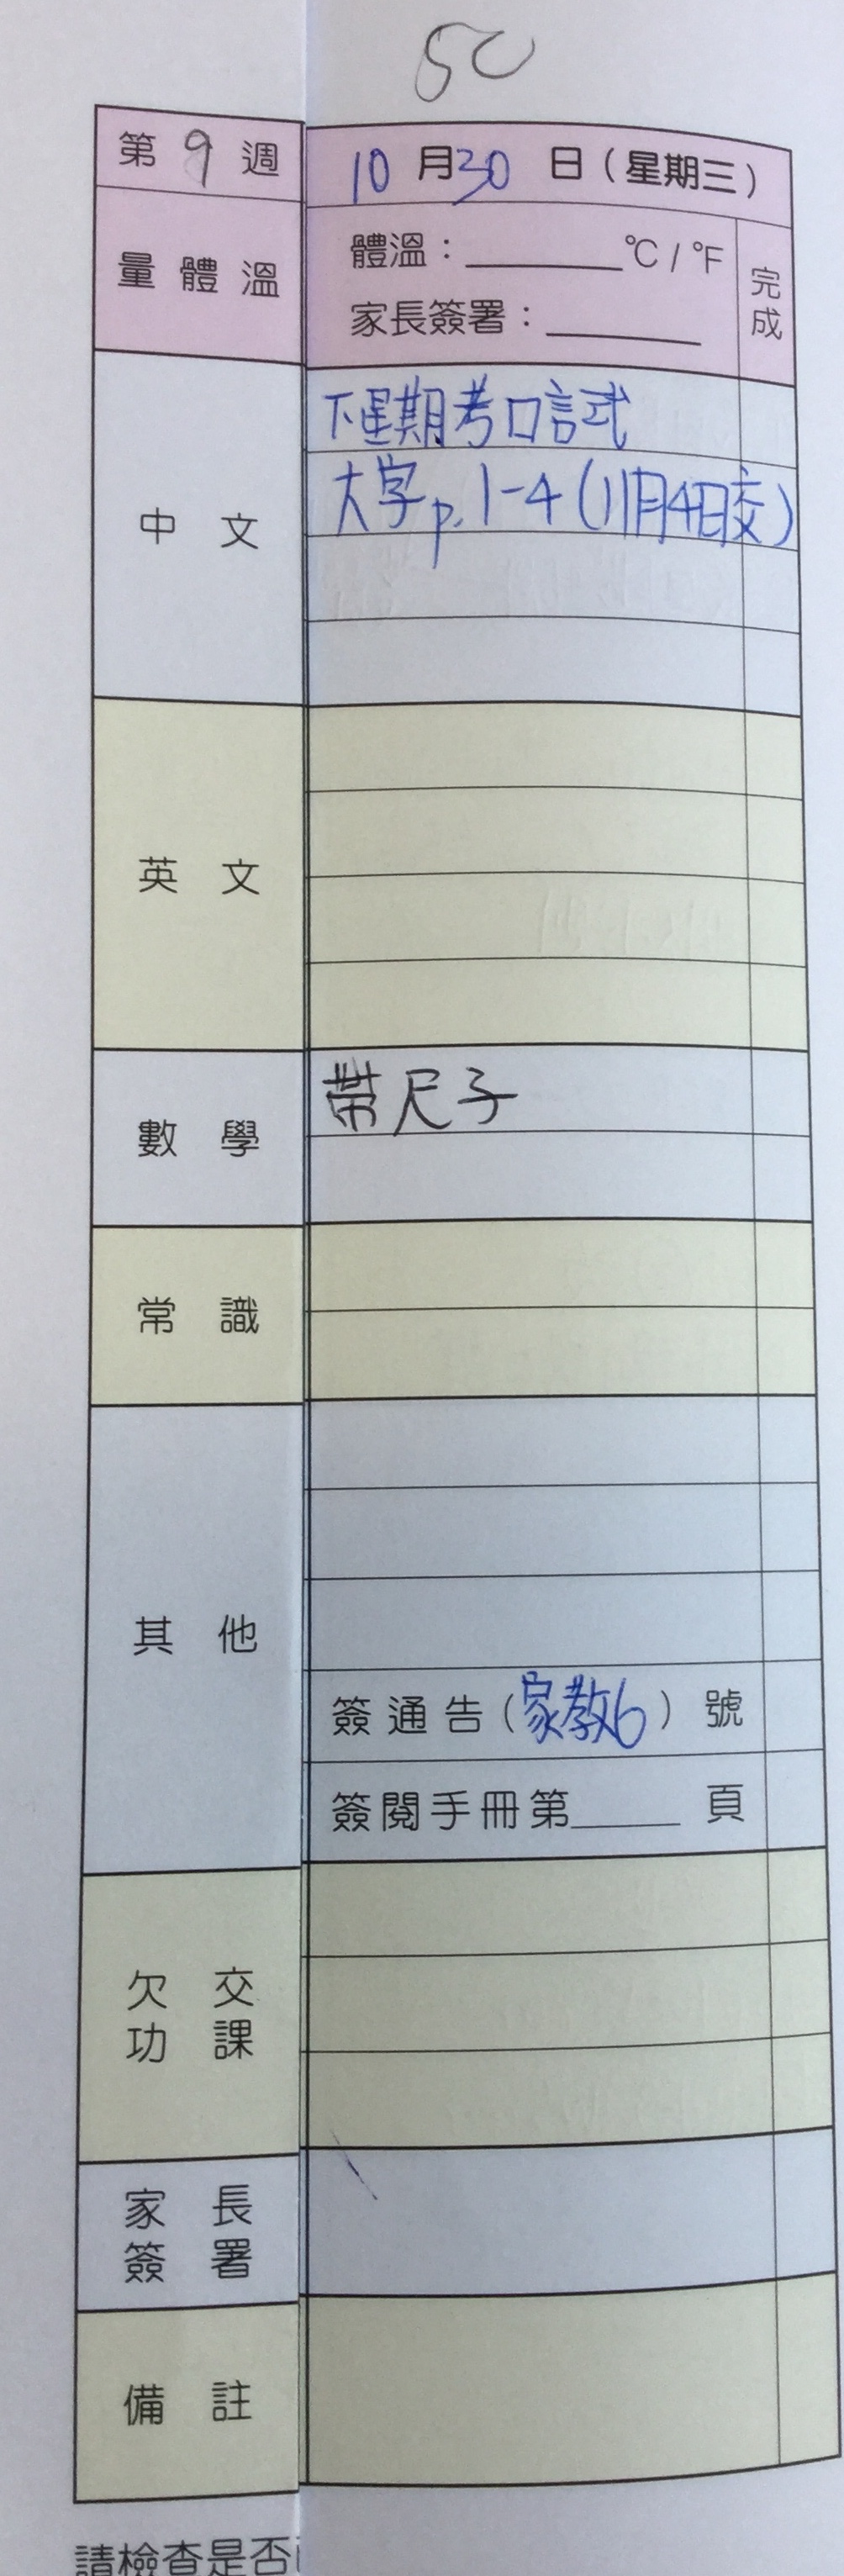 5C
第 9 週
10 月 30 日（星期三）
量 體 溫
體溫：______°C / °F
家長簽署：______
完成
中 文
下星期考口試
大字 p.1-4 (11月4日交)
英 文
數 學
帶尺子
常 識
其 他
簽 通 告（家教6）號
簽閱手冊第_____ 頁
欠 交
功 課
家 長
簽 署
備 註
請檢查是否